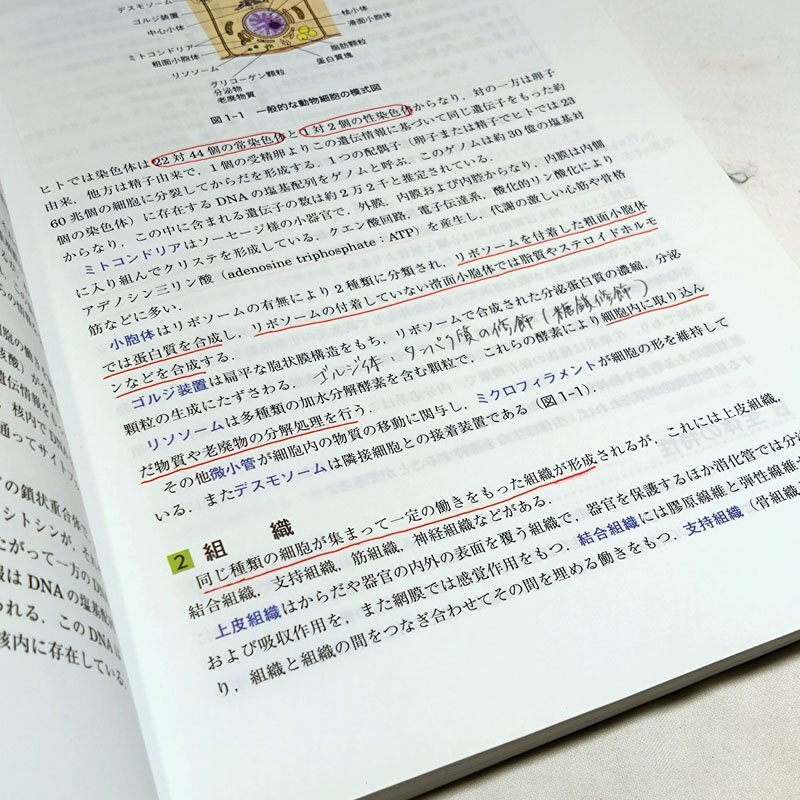 デスモソーム
ゴルジ装置
中心小体
ミトコンドリア
粗面小胞体
リソソーム
グリコーゲン顆粒
分泌物
老廃物
核小体
滑面小胞体
脂肪顆粒
蛋白質塊
図1-1 一般的な動物細胞の模式図
ヒトでは染色体は22対44個の常染色体と1対2個の性染色体からなり，対の一方は卵子
由来，他方は精子由来で，1個の受精卵よりこの遺伝情報に基づいて同じ遺伝子をもった約
60兆個の細胞に分裂してからだを形成する．1つの配偶子（卵子または精子でヒトでは23
個の染色体）に存在するDNAの塩基配列をゲノムと呼ぶ．このゲノムは約30億の塩基対
からなり，この中に含まれる遺伝子の数は約2万2千と推定されている．
ミトコンドリアはソーセージ様の小器官で，外膜，内膜および内腔からなり，内膜は内側
に入り組んでクリステを形成している．クエン酸回路，電子伝達系，酸化的リン酸化により
アデノシン三リン酸（adenosine triphosphate：ATP）を産生し，代謝の激しい心筋や骨格
筋などに多い．
小胞体はリボソームの有無により2種類に分類され，リボソームを付着した粗面小胞体
では蛋白質を合成し，リボソームの付着していない滑面小胞体では脂質やステロイドホルモ
ンなどを合成する．
ゴルジ装置は扁平な胞状膜構造をもち，リボソームで合成された分泌蛋白質の濃縮，分泌
顆粒の生成にたずさわる．ゴルジ体：タンパク質の修飾（糖鎖修飾）
リソソームは多種類の加水分解酵素を含む顆粒で，これらの酵素により細胞内に取り込ん
だ物質や老廃物の分解処理を行う．
その他微小管が細胞内の物質の移動に関与し，ミクロフィラメントが細胞の形を維持して
いる．またデスモソームは隣接細胞との接着装置である（図1-1）．
2 組 織
同じ種類の細胞が集まって一定の働きをもった組織が形成されるが，これには上皮組織，
結合組織，支持組織，筋組織，神経組織などがある．
上皮組織はからだや器官の内外の表面を覆う組織で，器官を保護するほか消化管では分泌
および吸収作用を，また網膜では感覚作用をもつ．結合組織には膠原線維と弾性線維
り，組織と組織の間をつなぎ合わせてその間を埋める働きをもつ．支持組織（骨組織
の鎖状重合体
シトシンが，
たがって一方のD
報はDNAの塩基
られる．このDNAは
核内に存在している．